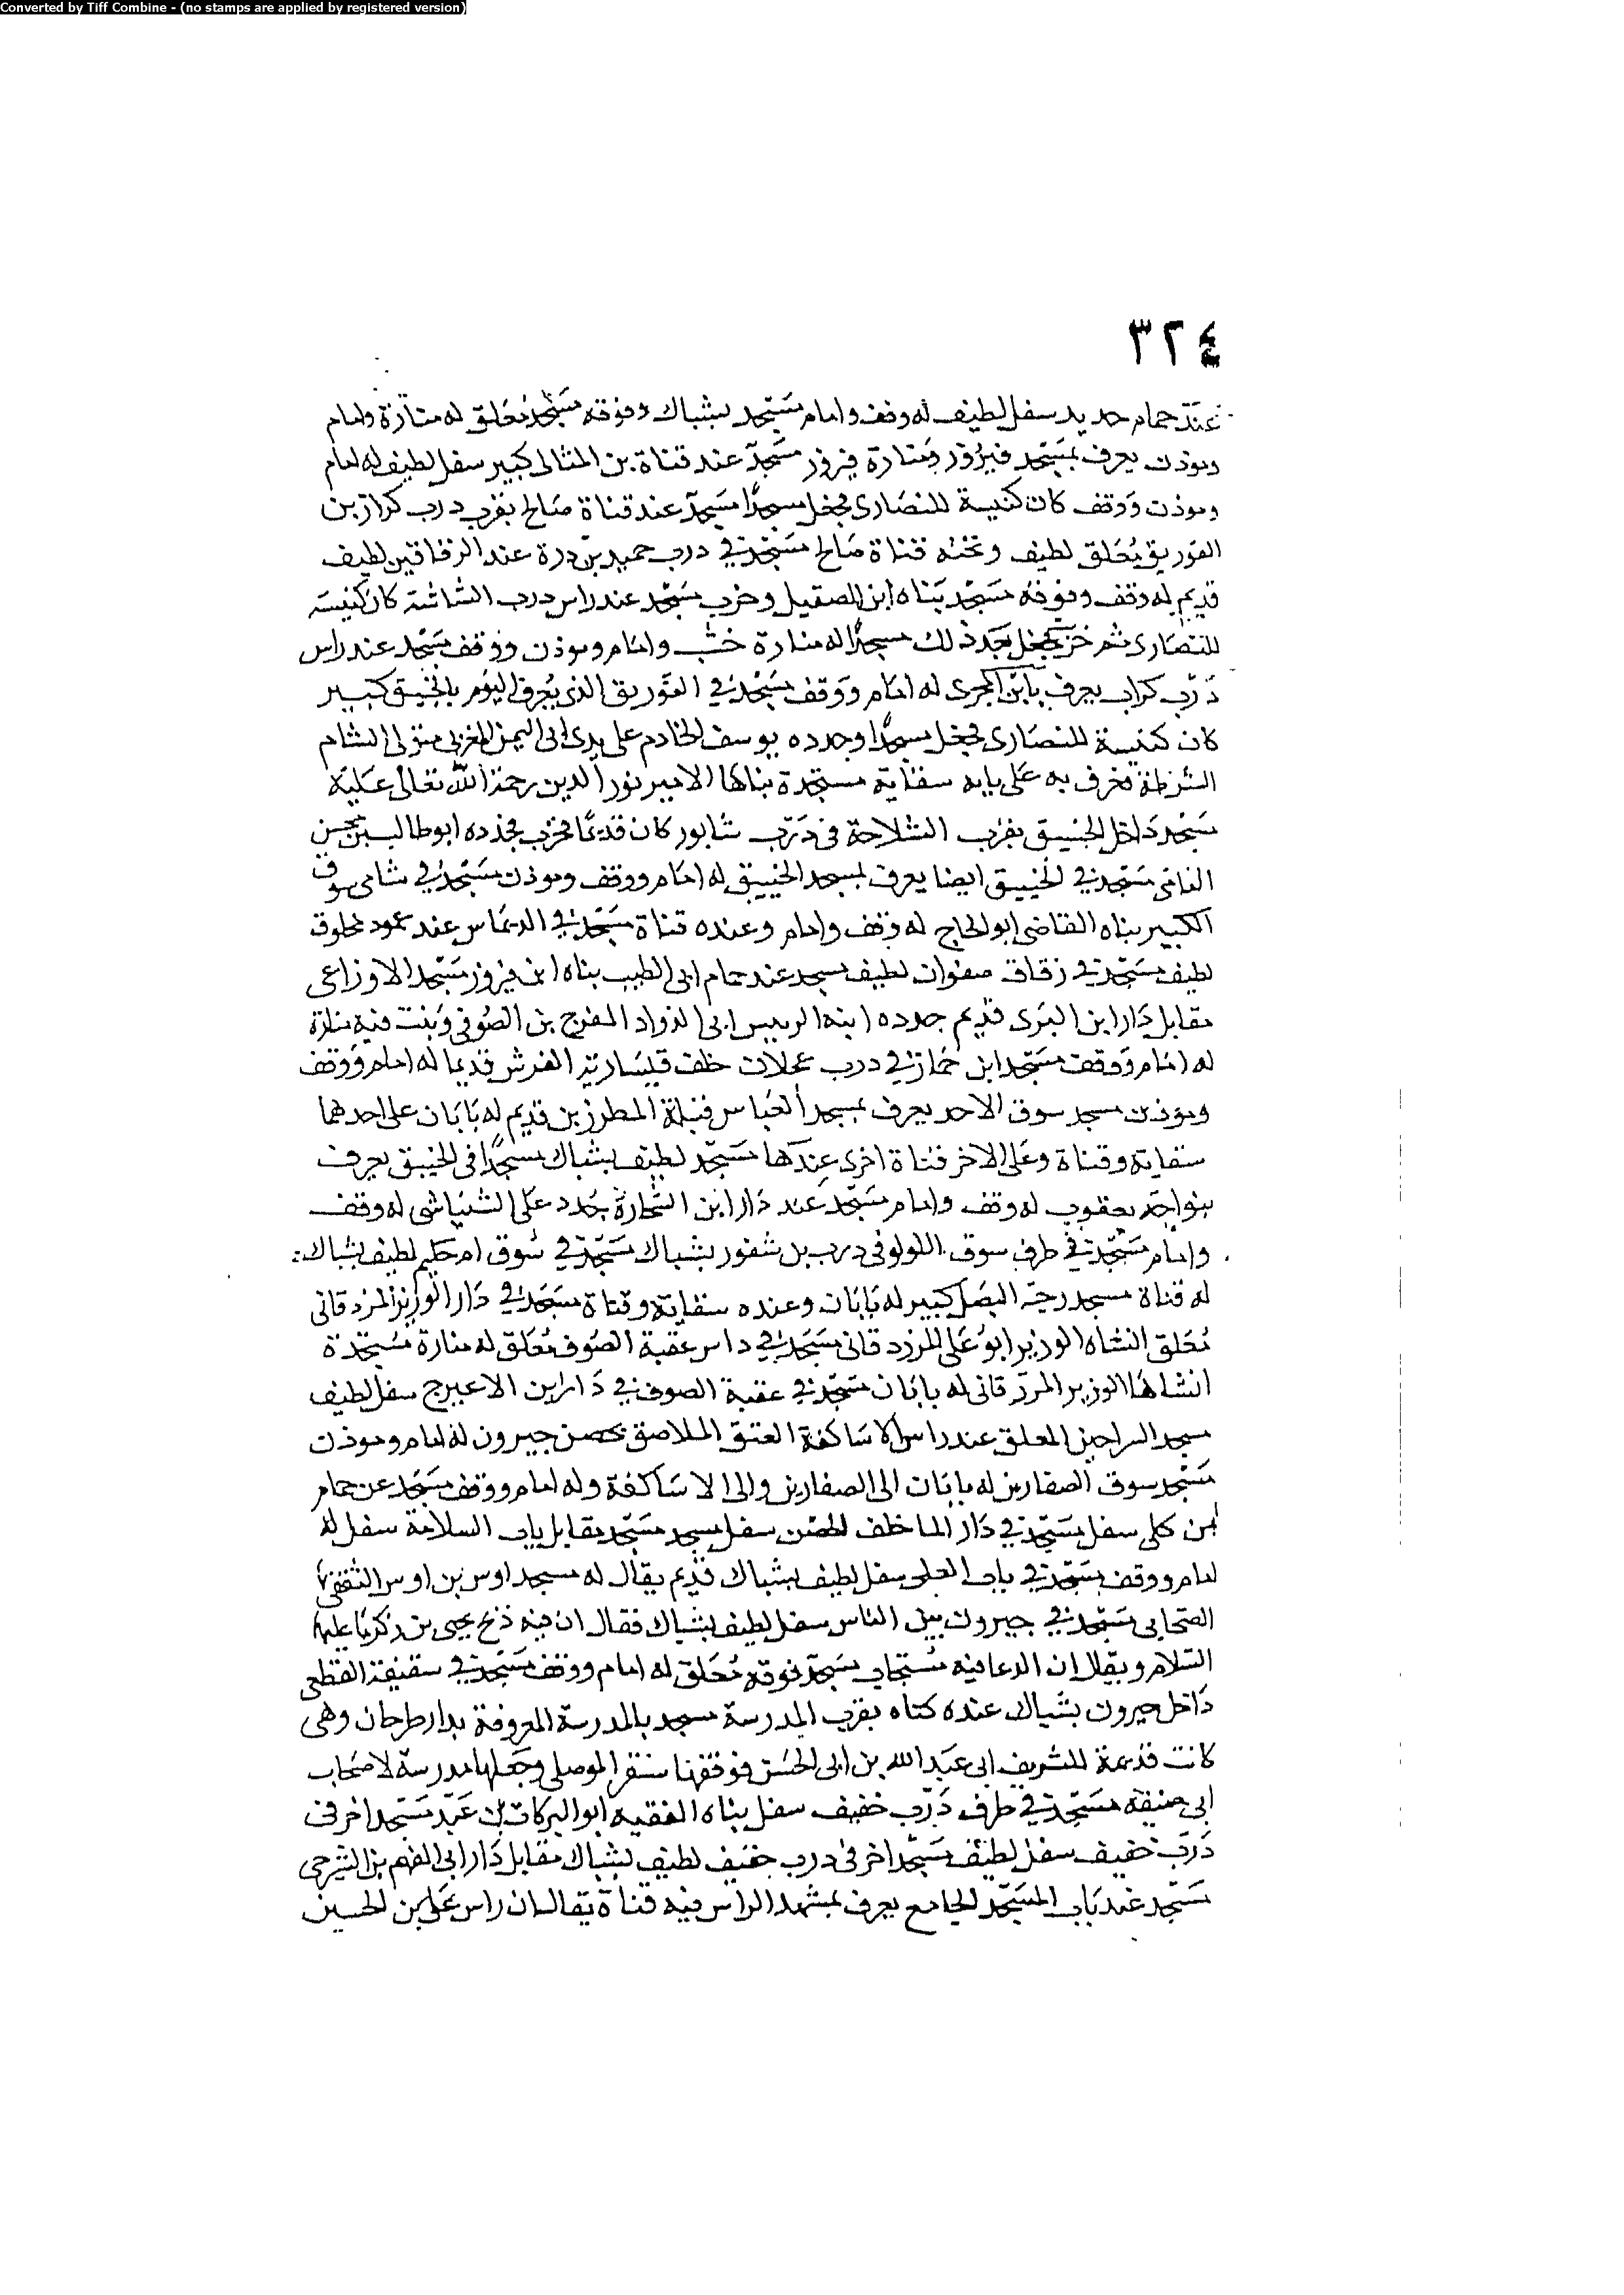 Converted by Tiff Combine - (no stamps are applied by registered version)
٣٢٤
عند حمام حديد سفل لطيف له وقف وامام مسجد بشباك وفوقه مسجد معلق له منارة وامام
وموذن يعرف بمسجد فيروز ومنارة فيروز مسجد عند قناة بن المثالى كبير سفل لطيف له امام
وموذن ووقف كان كنيسة للنصارى فجعل مسجدًا مسجد عند قناة صالح بقرب درب كراز بن
الفوريق معلق لطيف وتحته قناة صالح مسجد في درب حميد بن درة عند الزقاقين لطيف
قديم له وقف وفوقه مسجد بناه ابن الصقيل وخرب مسجد عند راس درب الشاشة كان كنيسة
للنصارى ثم خرب فجعل بعد ذلك مسجدًا له منارة خشب وامام وموذن ووقف مسجد عند راس
درب كراب يعرف بابن المجرى له امام ووقف مسجد في الفوريق الذي يعرف اليوم بالخنيق كبير
كان كنيسة للنصارى فجعل مسجدًا وجدده يوسف الخادم على يدى ابى اليمن المغربي متولى الشام
الشرطة فعرف به على بابه سقاية مستجدة بناها الامير نور الدين رحمة الله تعالى عليه
مسجد داخل الخنيق بقرب الشلاحة في درب شابور كان قديمًا فخرب فجدده ابو طالب بن محسن
مسجد في الخنيق ايضا يعرف بمسجد الخنيق له امام ووقف وموذن مسجد في شامى سوق
الكبير بناه القاضى ابو الحاج له وقف وامام وعنده قناة مسجد في الديماس عند عمود مخلوق
لطيف مسجد في زقاق صفوان لطيف مسجد عند حمام ابى الطيب بناه ابن فيروز مسجد الاوزاعى
مقابل دار ابن البرى قديم جدده ابنه الرييس ابى الذواد المفرج بن الصوفى وبنت فيه منارة
له امام ووقف مسجد ابن خماز في درب عجلان خلف قيسارية الفرش قديما له امام ووقف
وموذن مسجد سوق الاحد يعرف بمسجد العباس قبلة المطرزين قديم له بابان على احدهما
سقاية وقناة وعلى الاخر قناة اخرى عندها مسجد لطيف بشباك مسجدًا في الخنيق يعرف
يعقوب له وقف وامام مسجد عند دار ابن جدد على له وقف
وامام مسجد في طرف سوق اللولو في درب بل شفور بشباك مسجد في سوق ام حكيم لطيف بشباك
له قناة مسجد رحبة البصل كبير له بابان وعنده سقاية وقناة مسجد في دار الوزير المزدقانى
معلق انشاه الوزير ابو على المزدقانى مسجد في راس عقبة الصوف معلق له منارة مستجدة
انشاها الوزير المزدقانى له بابان مسجد في عقبة الصوف في دار ابن الاعيرج سفل لطيف
مسجد السراجين المعلق عند راس الاساكفة العتق الملاصق بحصن جيرون له امام وموذن
مسجد سوق الصفارين له بابان الى الصفارين والى الاساكفة وله امام ووقف مسجد عن حمام
ابن كلى سفل مسجد في دار الما خلف الحصن سفل مسجد مسجد مقابل باب السلامة سفل له
امام ووقف مسجد في باب سفل لطيف بشباك قديم يقال له مسجد اوس بن اوس الثقفى
الصحابى مسجد في جيرون بين الناس سفل لطيف بشباك فقال ان فيه ذبح يحيى بن زكريا عليهما
السلام ويقال ان الدعا فيه مستجاب مسجد فوقه معلق له امام ووقف مسجد في سقيفة القطعى
داخل جيرون بشباك عنده كتاه بقرب المدرسة مسجد بالمدرسة المعروفة بدار طرخان وهى
كانت قديمة للشريف ابى عبد الله بن ابى الحسن فوقفها سنقر الموصلى وجعلها مدرسة لاصحاب
ابى حنيفه مسجد في طرف درب خفيف سفل بناه الفقيه ابو البركات بن عبد مسجد اخر في
درب خفيف سفل لطيف مسجد اخر في درب خفيف لطيف بشباك مقابل دار ابى الفهم بن الشرجى
مسجد عند باب المسجد الجامع يعرف بمشهد الراس فيه قناة يقال ان راس على بن الحسين